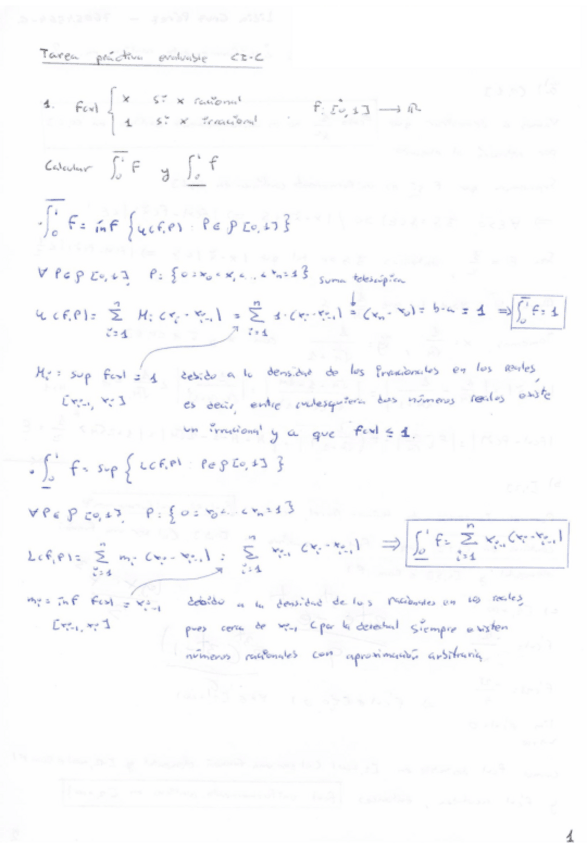 Tarea práctica evaluable C2-C
1. F(x) { x si x racional
1 si x irracional
F: [0, 1] → ℝ
Calcular ∫̅₀¹ F y ∫̲₀¹ f
· ∫̅₀¹ F = inf { U(F,P) : P ∈ 𝒫 [0,1] }
∀ P ∈ 𝒫 [0,1] P: { 0 = x₀ < x₁ ... < xₙ = 1 } suma telescópica
U(F,P) = ∑ᵢ₌₁ⁿ Mᵢ (xᵢ - xᵢ₋₁) = ∑ᵢ₌₁ⁿ 1·(xᵢ - xᵢ₋₁) = (xₙ - x₀) = b-a = 1 ⇒ ∫̅₀¹ F = 1
Mᵢ = sup f(x) = 1 debido a la densidad de los irracionales en los reales,
[xᵢ₋₁, xᵢ] es decir, entre cualesquiera dos números reales existe
un irracional y a que f(x) ≤ 1.
· ∫̲₀¹ f = sup { L(F,P) : P ∈ 𝒫 [0,1] }
∀ P ∈ 𝒫 [0,1] P: { 0 = x₀ < ... < xₙ = 1 }
L(F,P) = ∑ᵢ₌₁ⁿ mᵢ (xᵢ - xᵢ₋₁) = ∑ᵢ₌₁ⁿ xᵢ₋₁ (xᵢ - xᵢ₋₁) ⇒ ∫̲₀¹ F = ∑ᵢ₌₁ⁿ xᵢ₋₁ (xᵢ - xᵢ₋₁)
mᵢ = inf f(x) = xᵢ₋₁ debido a la densidad de los racionales en los reales,
[xᵢ₋₁, xᵢ] pues cerca de xᵢ₋₁ (por la derecha) siempre existen
números racionales con aproximación arbitraria.
1